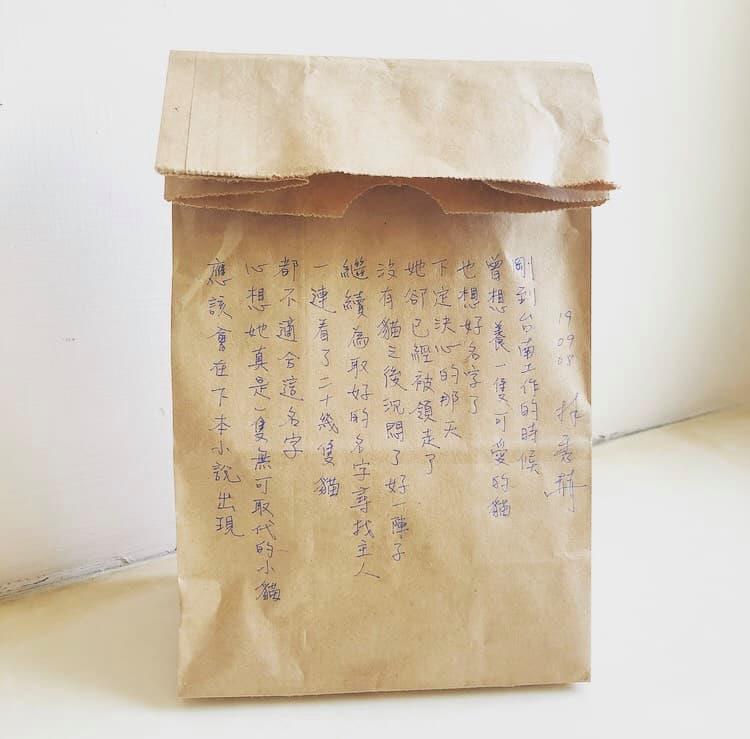 19
09
08
林秀赫
剛到台南工作的時候
曾想養一隻可愛的貓
也想好名字了
下定決心的那天
她卻已經被領走了
沒有貓之後沉悶了好一陣子
繼續為取好的名字尋找主人
一連看了二十幾隻貓
都不適合這名字
心想她真是一隻無可取代的小貓
應該會在下本小說出現